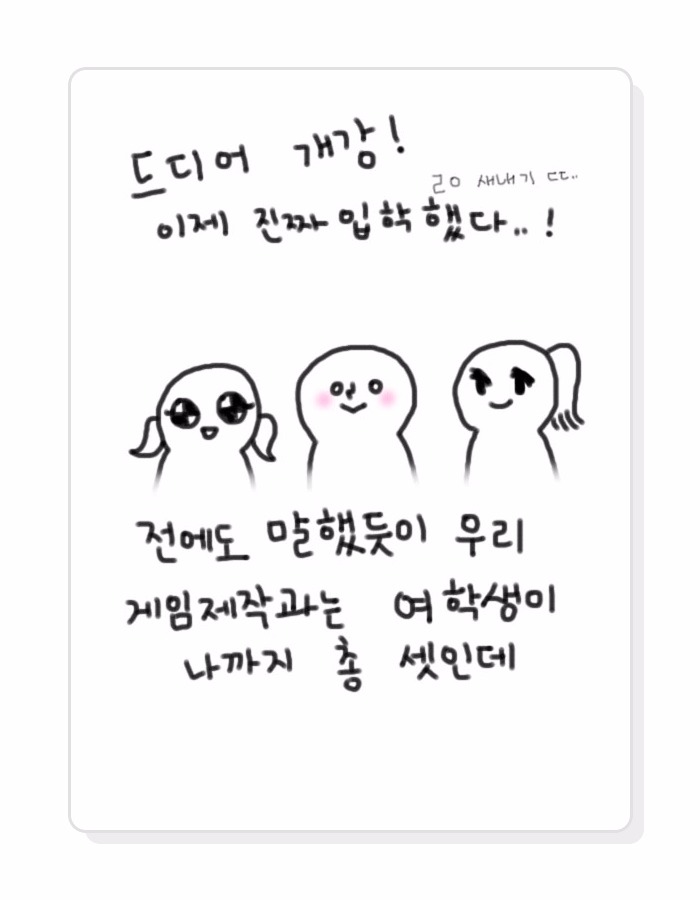 드디어 개강!
ㄹㅇ 새내기 ㄷㄷ..
이제 진짜 입학했다..!
전에도 말했듯이 우리
게임제작과는 여학생이
나까지 총 셋인데